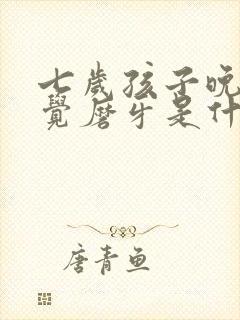 七歲孩子晚
覺磨牙是什
唐青魚